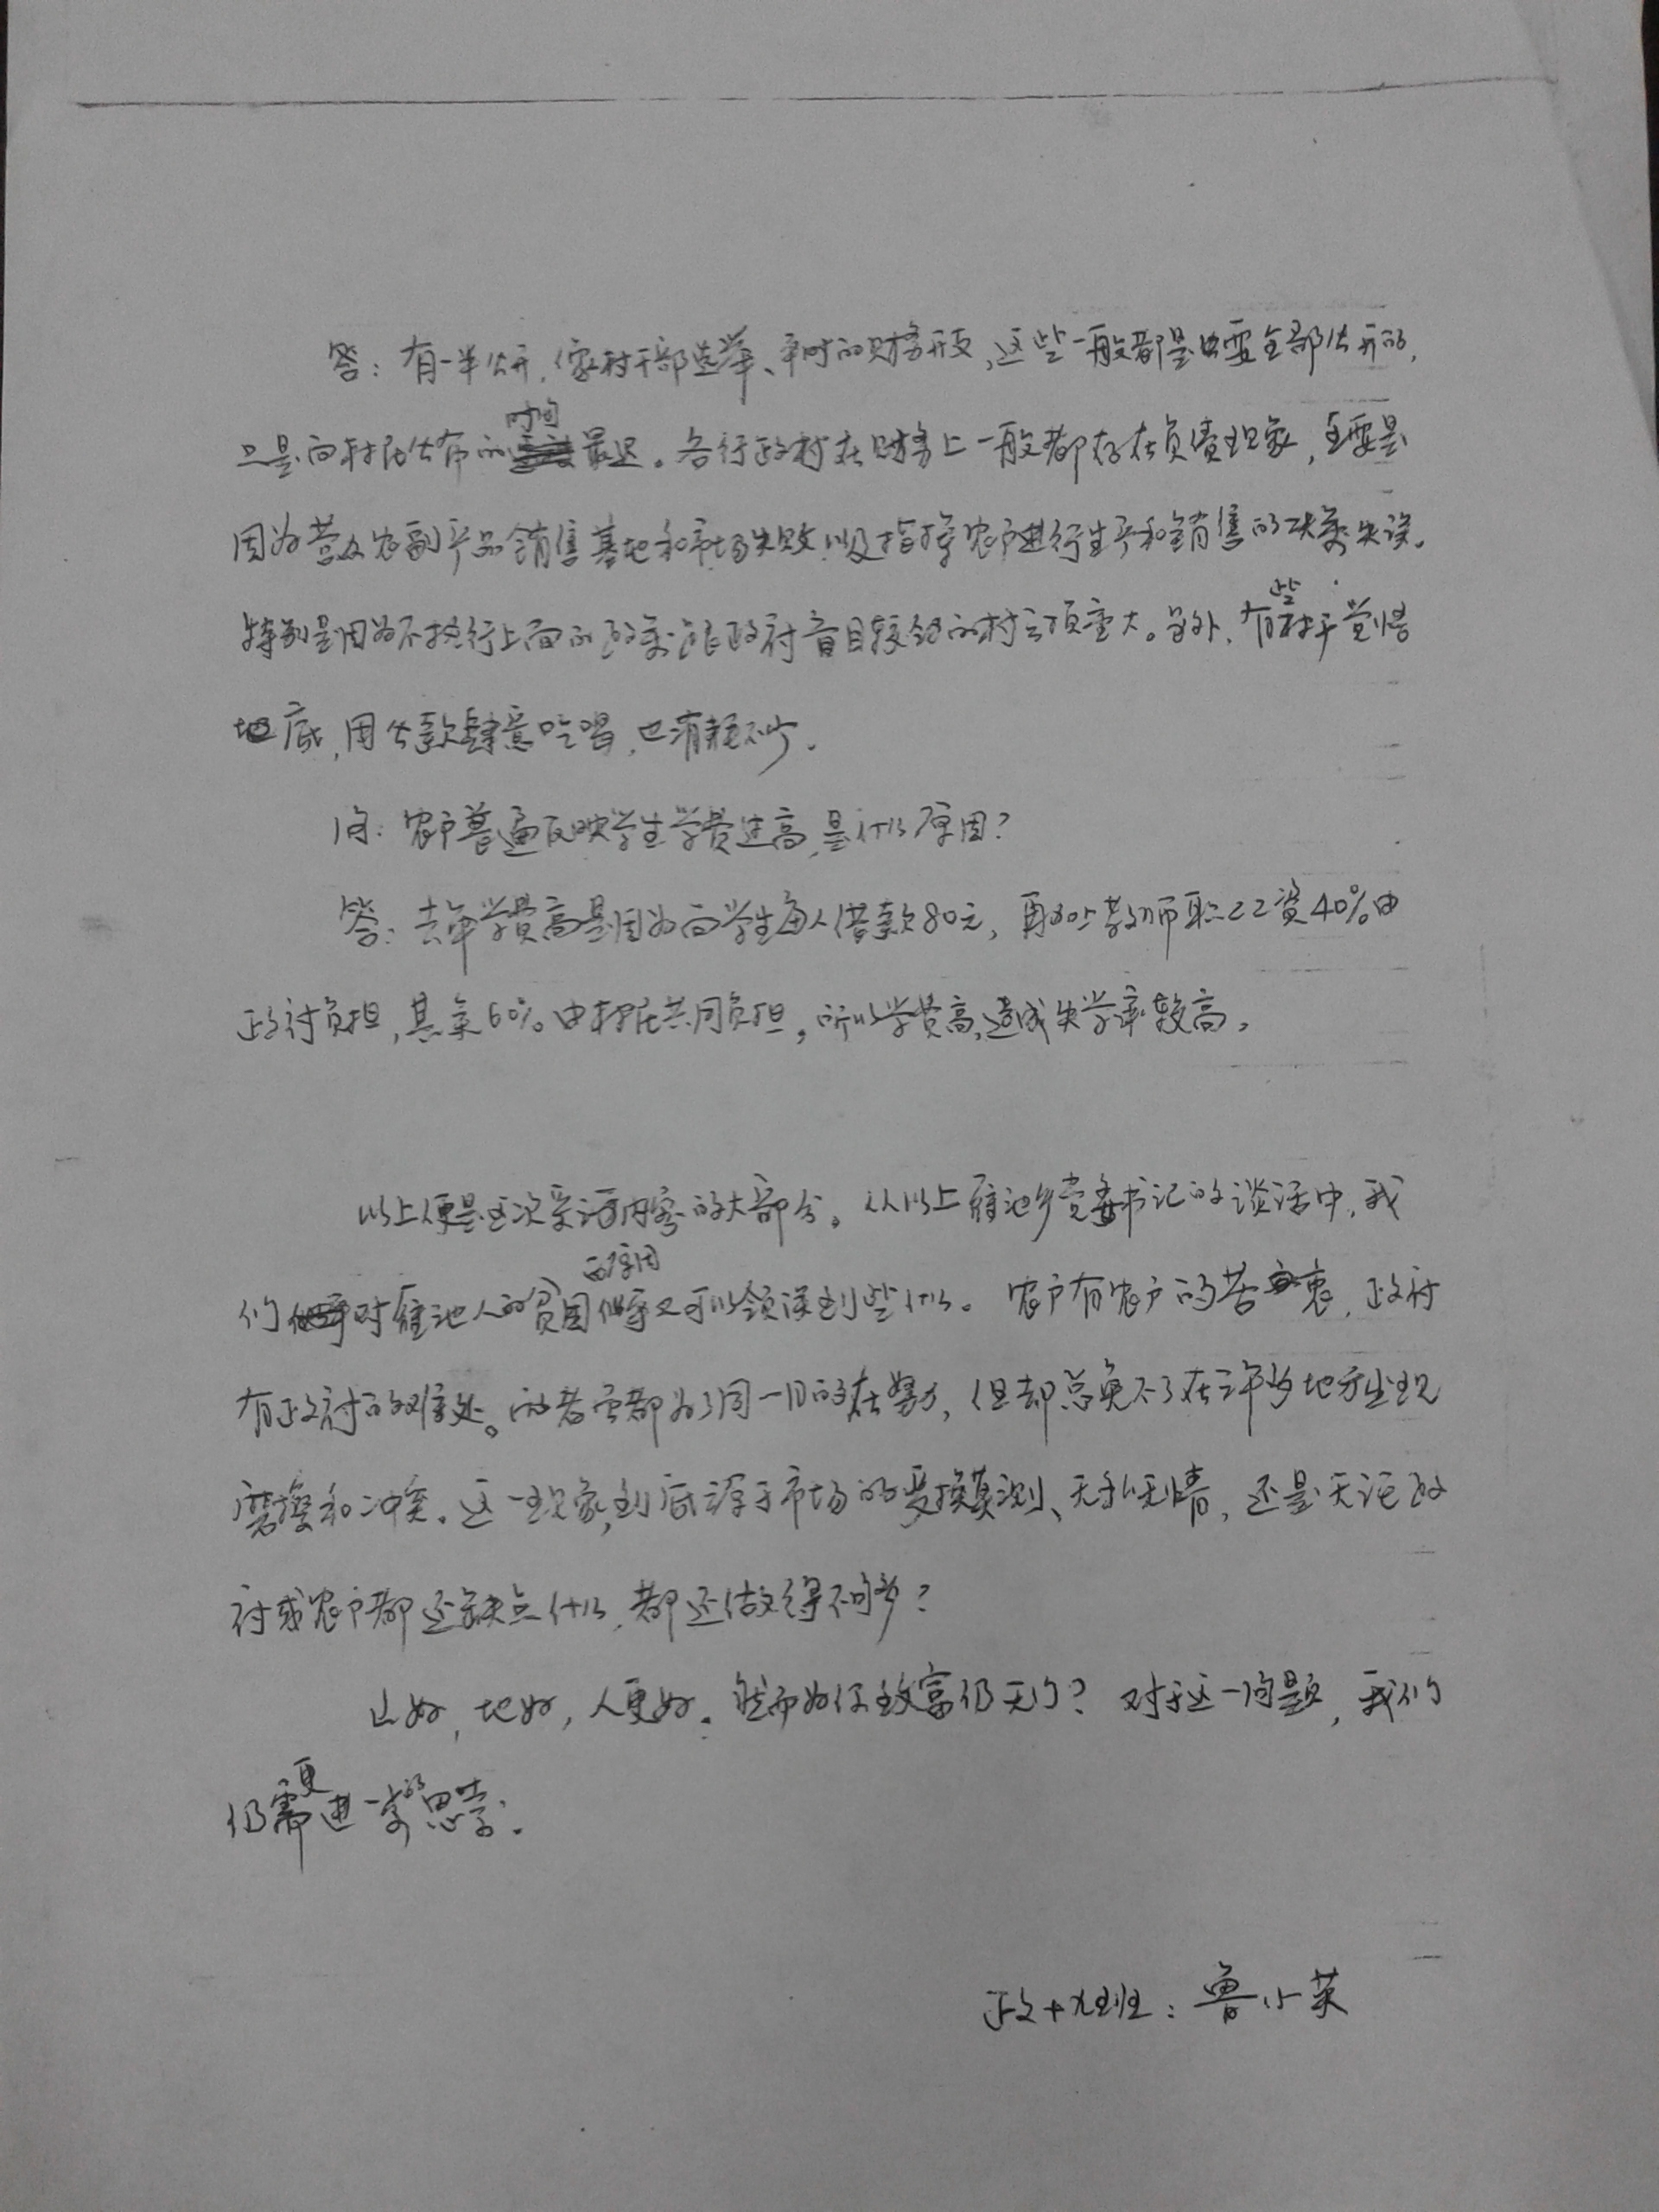 答：有一半公开，像村干部选举、平时的财务开支，这些一般都是需要全部公开的，
只是向村民公布的时间最迟。各行政村在财务上一般都存在负债现象，主要是
因为营办农副产品销售基地和市场失败以及指挥农户进行生产和销售的决策失误。
特别是因为不执行上面的政策 政府盲目 的村 重大。另外，有些村干觉悟
地底，用公款肆意吃喝，也消耗不少。
问：农户普遍反映学生学费过高，是什么原因？
答：去年学费高是因为向学生每人借款80元，再加上教师职工工资40%由
政府负担，其余60%由村民共同负担，所以学费高，造成失学率较高。
以上便是这次采访内容的大部分。从以上雁池乡党委书记的谈话中，我
们对雁池人的贫困的原因似乎又可以领误到些什么。农户有农户的苦衷，政府
有政府的难处。两者 都为了同一目的在努力，但却总免不了在许多地方出现
磨擦和冲突。这一现象，到底源于市场的变换莫测、无私无情，还是无论政
府或农户都还缺点什么，都还做得不够？
山好，地好，人更好。然而为何致富仍无门？对于这一问题，我们
仍需更进一步的思考。
政十九班：鲁小英